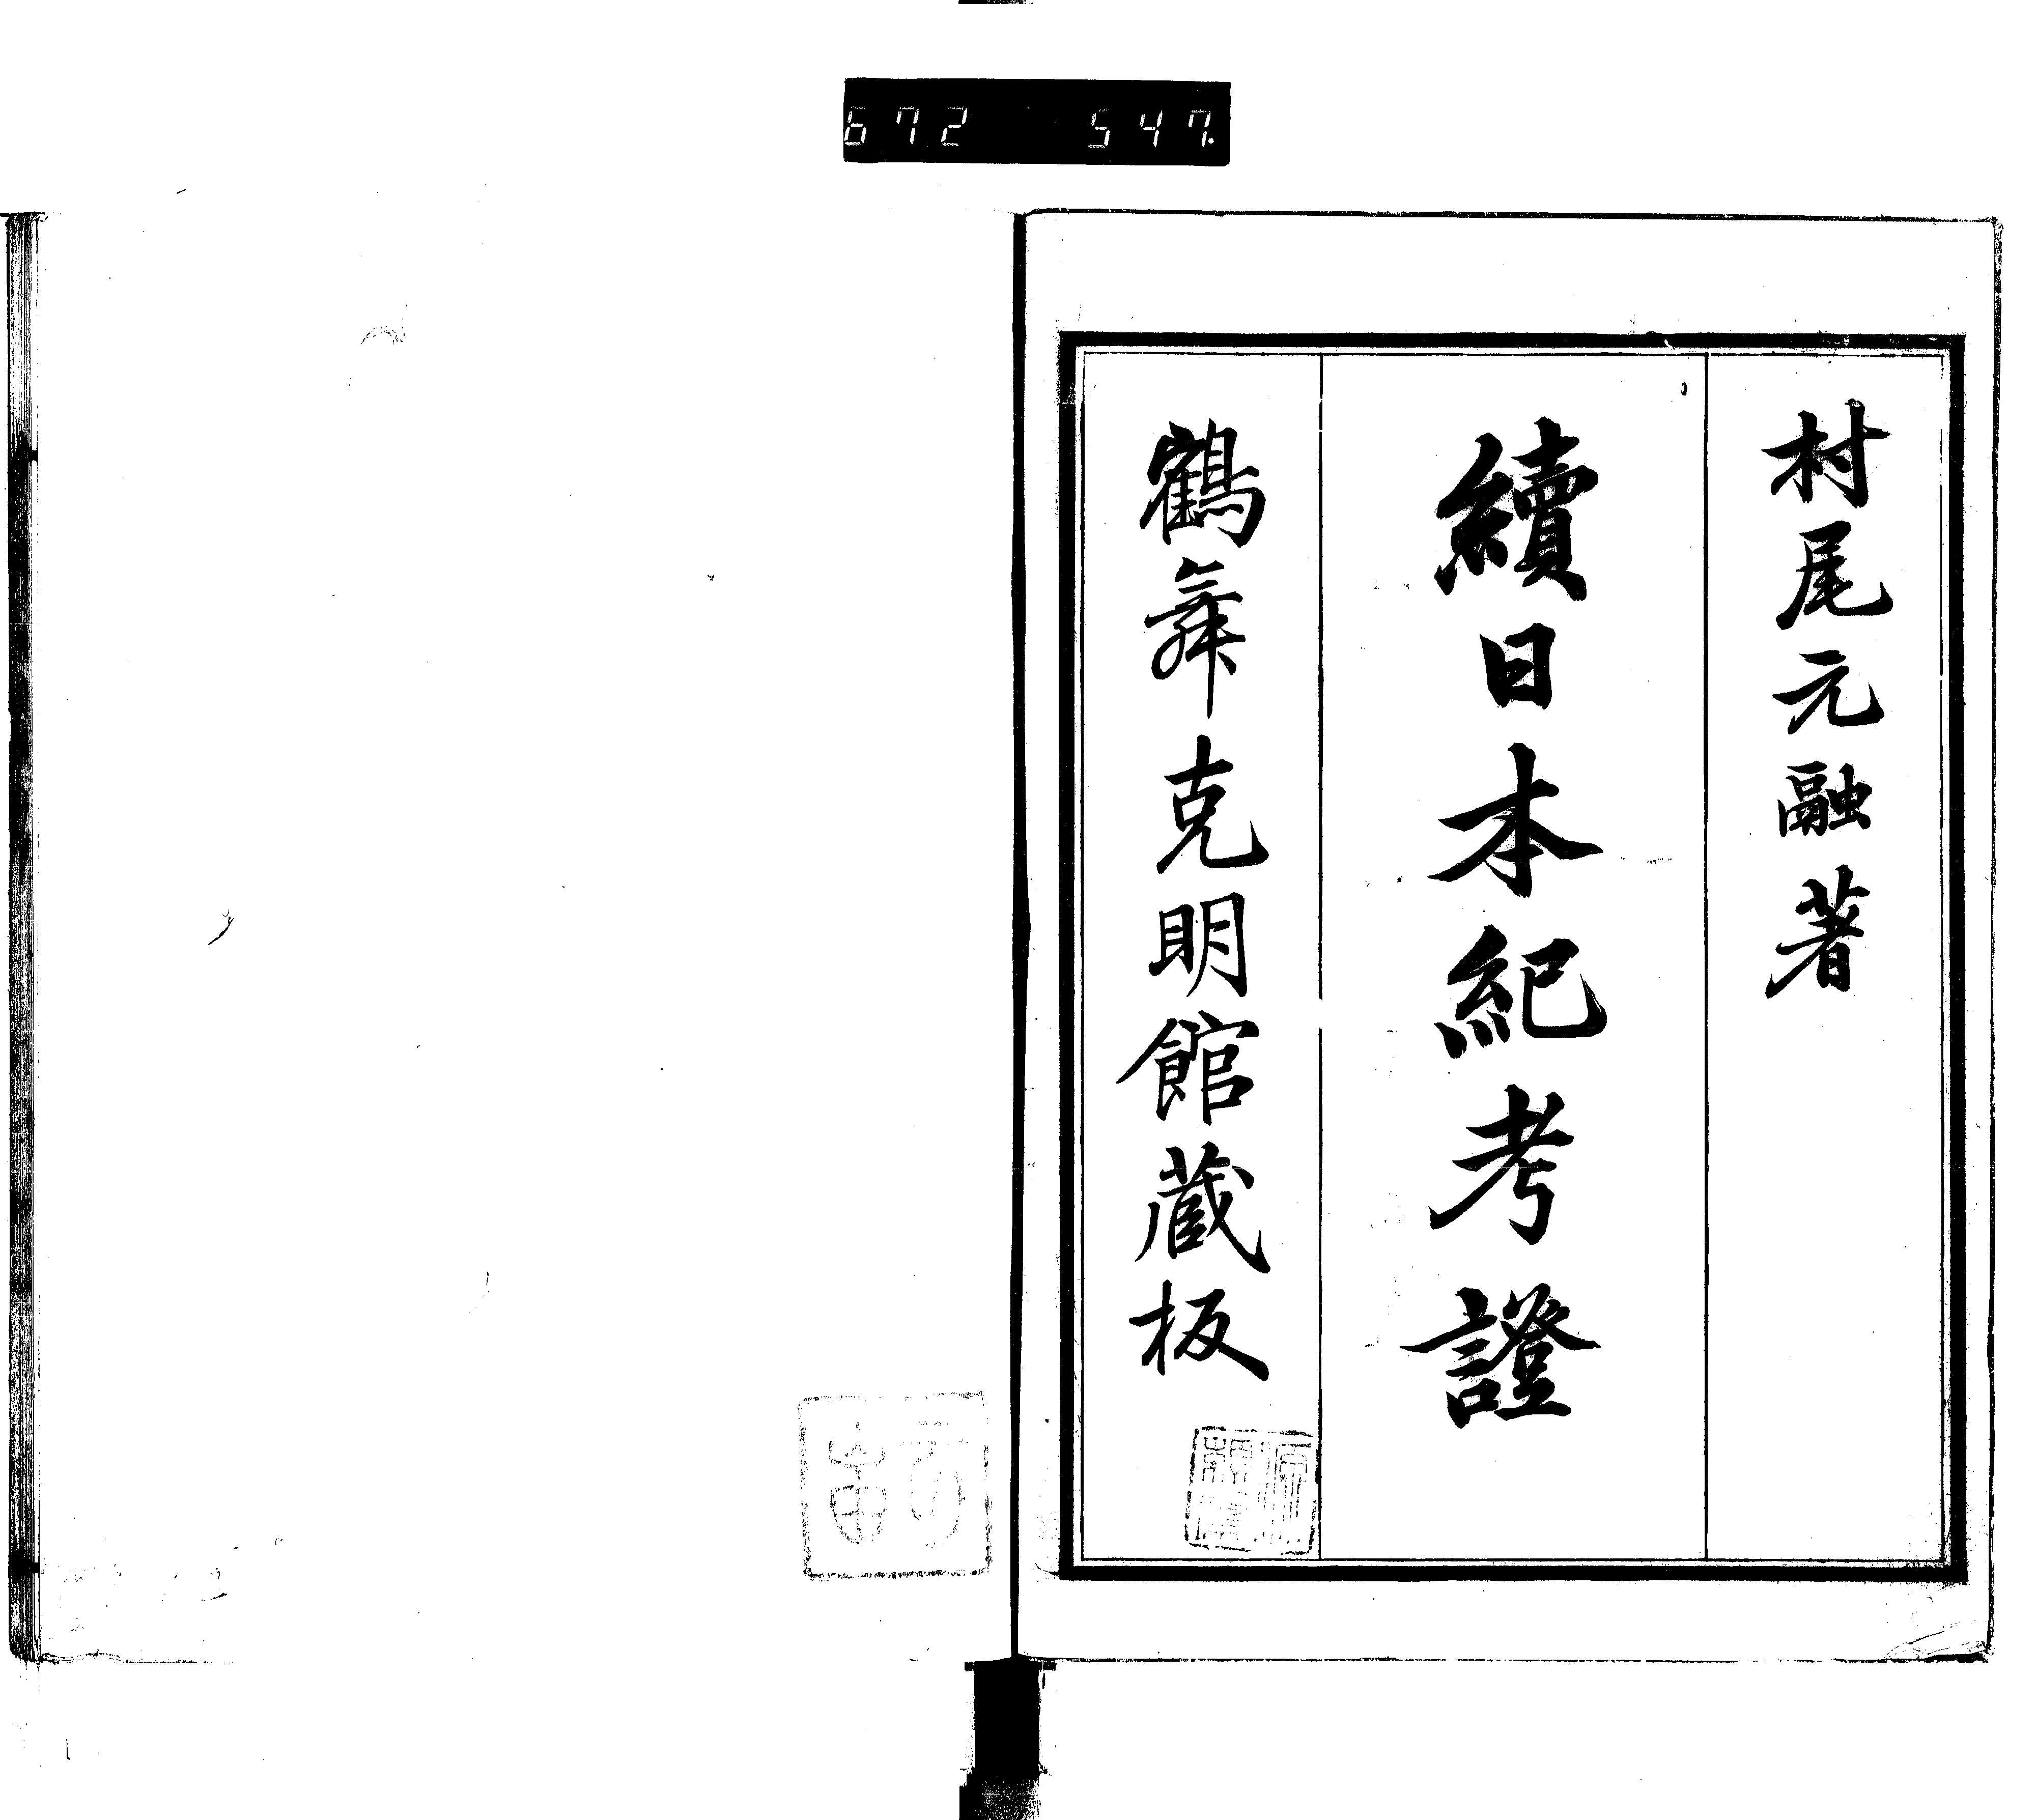 672 547.
村尾元融著
續日本紀考證
鶴舞克明館蔵板